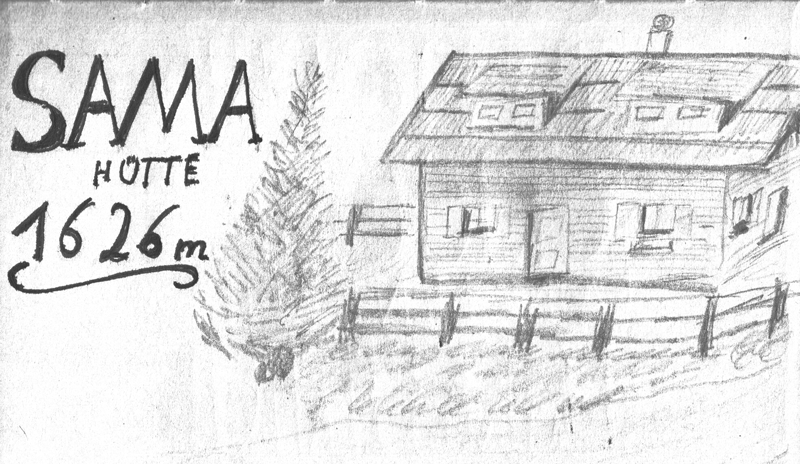 SAMA
HÜTTE
1626 m